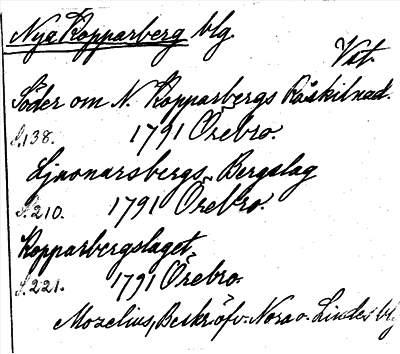 Nya Kopparberg blg.
Vst.
Söder om N. Kopparbergs Råskilnad.
S.138. 1791 Örebro.
Ljusnarsbergs Bergslag
S.210. 1791 Örebro.
Kopparbergslaget
S.221. 1791 Örebro.
Mozelius, Beskr. öfv. Nora o. Lindes blg